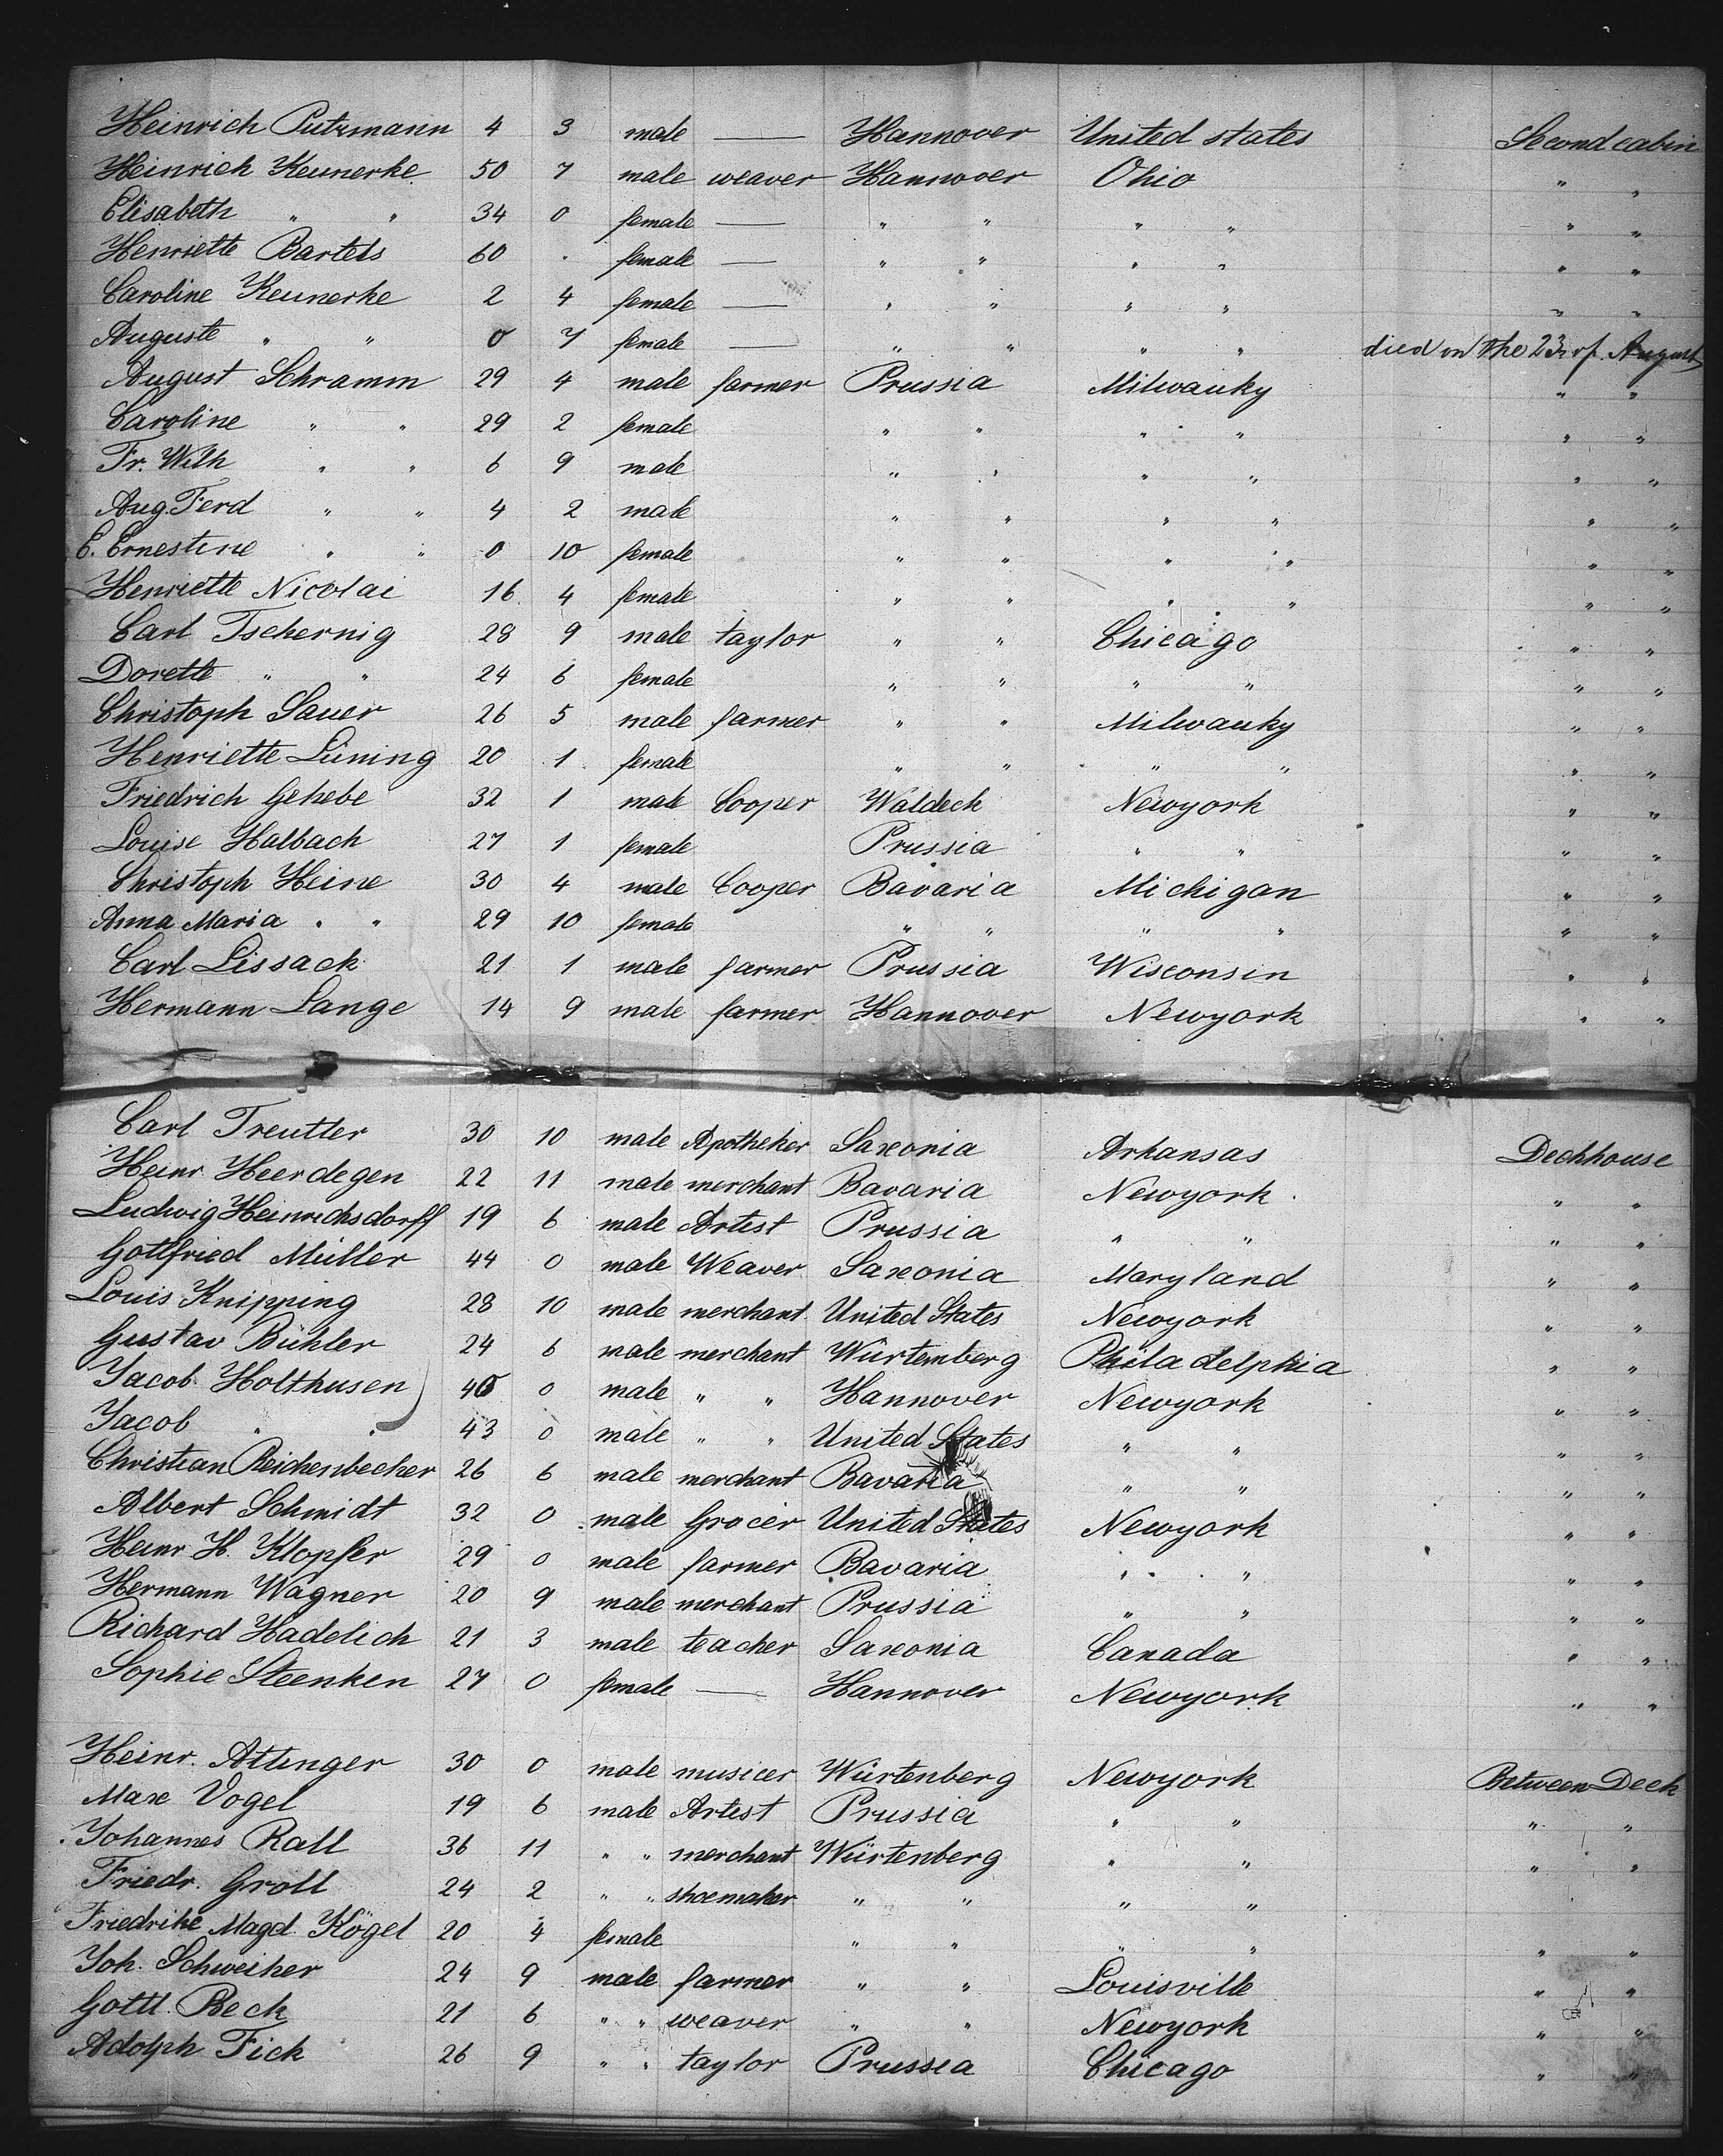 Heinrich Putzmann 4 3 male — Hannover United states Second cabin
Heinrich Keunerke 50 7 male weaver Hannover Ohio " "
Elisabeth " " 34 0 female — " " " " " "
Henriette Bartels 60 . female — " " " " " "
Caroline Keunerke 2 4 female — " " " " " "
Auguste " " 0 7 female — " " " " died on the 23 of August
August Schramm 29 4 male farmer Prussia Milwauky " "
Caroline " " 29 2 female " " " " " "
Fr. Wilh " " 6 9 male " " " " " "
Aug. Ferd " " 4 2 male " " " " " "
C. Ernestine " " 0 10 female " " " " " "
Henriette Nicolai 16 4 female " " " " " "
Carl Tschernig 28 9 male taylor " " Chicago " "
Dorette " " 24 6 female " " " " " "
Christoph Sauer 26 5 male farmer " " Milwauky " "
Henriette Lüning 20 1 female " " " " " "
Friedrich Gehebe 32 1 male Cooper Waldeck Newyork " "
Louise Halbach 27 1 female Prussia " " " "
Christoph Heine 30 4 male Cooper Bavaria Michigan " "
Anna Maria " " 29 10 female " " " " " "
Carl Lissack 21 1 male farmer Prussia Wisconsin " "
Hermann Lange 14 9 male farmer Hannover Newyork " "
Carl Treutter 30 10 male Apotheker Saxonia Arkansas Deckhouse
Heinr Heerdegen 22 11 male merchant Bavaria Newyork " "
Ludwig Heinrichsdorff 19 6 male Artest Prussia " " " "
Gottfried Müller 44 0 male Weaver Saxonia Maryland " "
Louis Knipping 28 10 male merchant United States Newyork " "
Gustav Bühler 24 6 male merchant Würtemberg Philadelphia " "
Jacob Holthusen 40 0 male " " Hannover Newyork " "
Jacob " " 43 0 male " " United States " " " "
Christian Reichenbecher 26 6 male merchant Bavaria " " " "
Albert Schmidt 32 0 male Grocer United States Newyork " "
Heinr H. Klopfer 29 0 male farmer Bavaria " " " "
Hermann Wagner 20 9 male merchant Prussia " " " "
Richard Hadelich 21 3 male teacher Saxonia Canada " "
Sophie Steenken 27 0 female — Hannover Newyork " "
Heinr. Attinger 30 0 male musicer Würtenberg Newyork Between Deck
Max Vogel 19 6 male Artest Prussia " " " "
Johannes Rall 36 11 " " merchant Würtenberg " " " "
Friedr. Groll 24 2 " " shoemaker " " " "
Friedrike Magd. Kögel 20 4 female " " " " " "
Joh. Schweiker 24 9 male farmer " " Louisville " "
Gottl. Beck 21 6 " " weaver " " Newyork " "
Adolph Fick 26 9 " " taylor Prussia Chicago " "